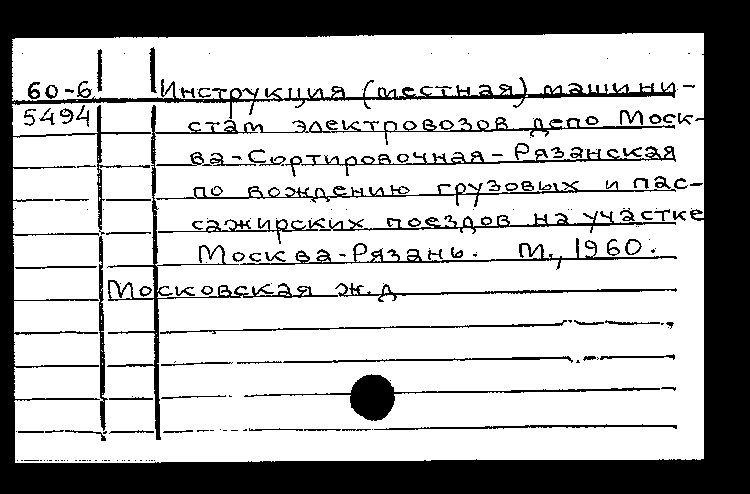 60-6 Инструкция (местная) машини-
5494 стам электровозов депо Моск-
ва-Сортировочная-Рязанская
по вождению грузовых и пас-
сажирских поездов на участке
Москва-Рязань. М., 1960.
Московская ж.д.